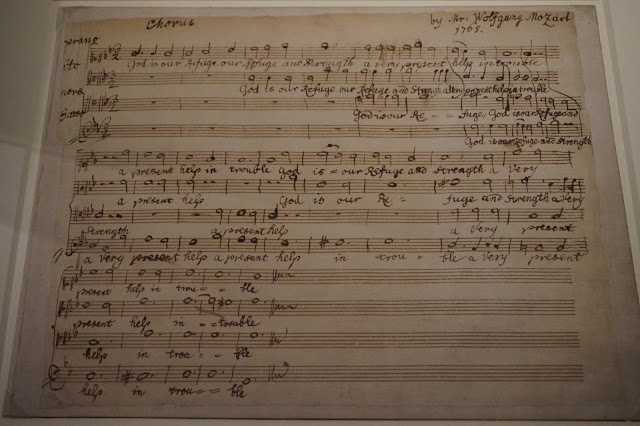 Chorus
by Mr. Wolfgang Mozart
1765.
God is our Refuge our Refuge and Strength a very present help in trouble
God is our Refuge our Refuge and Strength a very present help in trouble
God is our Re = = fuge, God is our Refuge and
God is our Refuge and Strength
a present help in trouble God is = our Refuge and Strength a Very
a present help God is our Re = fuge and Strength a Very
Strength a present help a Very present
a Very present help a present help in trou = = ble a Very present
present help in trou = = ble
present help in = = trouble
help in trou = = ble
help in trou = = ble